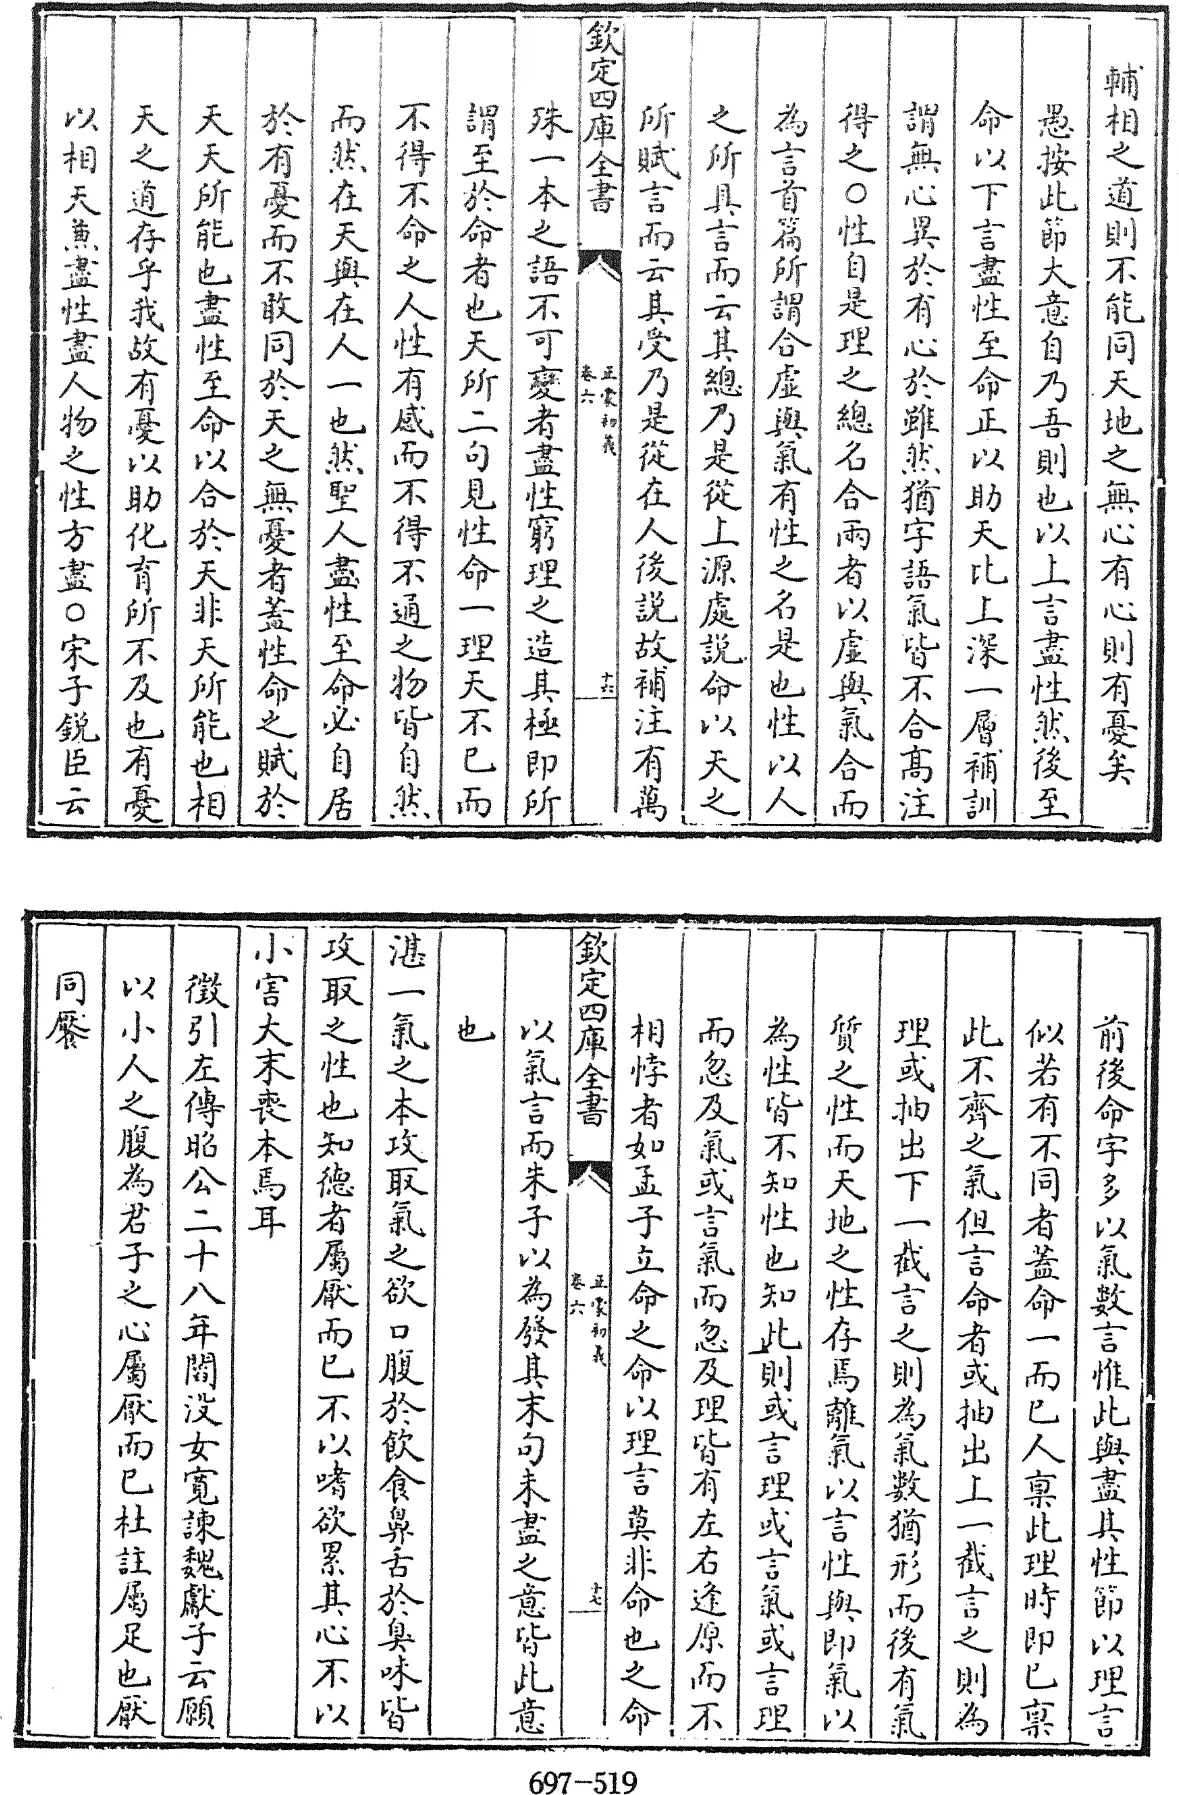 輔相之道則不能同天地之無心有心則有憂矣
愚按此節大意自乃吾則也以上言盡性然後至
命以下言盡性至命正以助天比上深一層補訓
謂無心異於有心於雖然猶字語氣皆不合高注
得之○性自是理之總名合兩者以虛與氣合而
為言首篇所謂合虛與氣有性之名是也性以人
之所具言而云其總乃是從上源處說命以天之
所賦言而云其受乃是從在人後說故補注有萬
欽定四庫全書
正蒙初義
卷六
十六
殊一本之語不可變者盡性窮理之造其極即所
謂至於命者也天所二句見性命一理天不已而
不得不命之人性有感而不得不通之物皆自然
而然在天與在人一也然聖人盡性至命必自居
於有憂而不敢同於天之無憂者蓋性命之賦於
天天所能也盡性至命以合於天非天所能也相
天之道存乎我故有憂以助化育所不及也有憂
以相天兼盡性盡人物之性方盡○宋子鋭臣云
前後命字多以氣數言惟此與盡其性節以理言
似若有不同者蓋命一而已人稟此理時即已稟
此不齊之氣但言命者或抽出上一截言之則為
理或抽出下一截言之則為氣數猶形而後有氣
質之性而天地之性存焉離氣以言性與即氣以
為性皆不知性也知此則或言理或言氣或言理
而忽及氣或言氣而忽及理皆有左右逢原而不
相悖者如孟子立命之命以理言莫非命也之命
欽定四庫全書
正蒙初義
卷六
十七
以氣言而朱子以為發其末句未盡之意皆此意
也
湛一氣之本攻取氣之欲口腹於飲食鼻舌於臭味皆
攻取之性也知德者屬厭而已不以嗜欲累其心不以
小害大末喪本焉耳
徵引左傳昭公二十八年閻没女寬諫魏獻子云願
以小人之腹為君子之心屬厭而已杜註屬足也厭
同饜
697-519